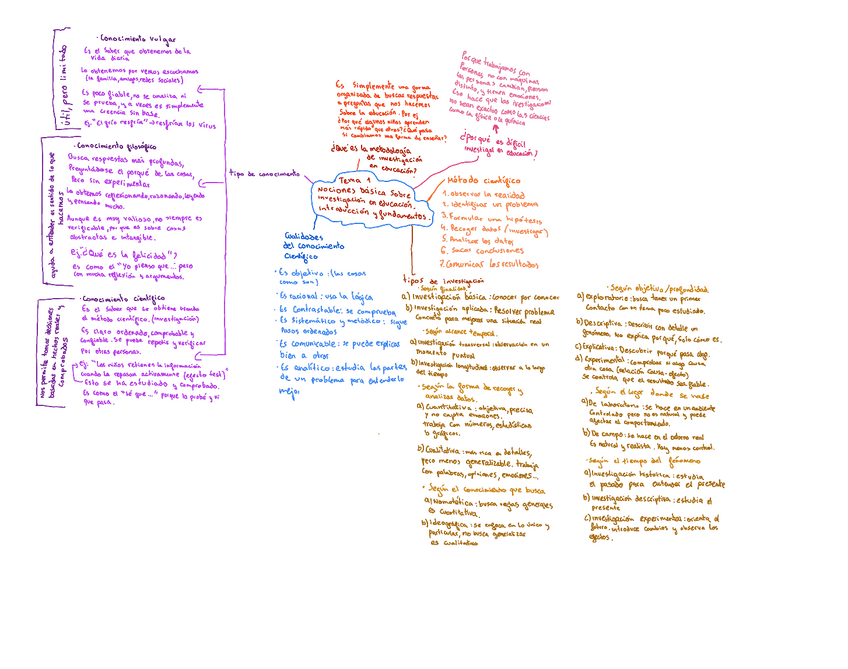 · Conocimiento vulgar
Es el saber que obtenemos de la
vida diaria
Lo obtenemos por vemos escuchamos
(la familia, amigos, redes sociales)
Es poco fiable, no se analiza ni
se prueba, y a veces es simplemente
una creencia sin base.
Ej: "El frío resfría" → resfrían los virus
Útil, pero limitado
· Conocimiento filosófico
Busca respuestas más profundas,
Preguntándose el porqué de las cosas,
Pero sin experimentar
Lo obtenemos reflexionando, razonando, leyendo
y pensando mucho.
Aunque es muy valioso, no siempre es
verificable, porque es sobre cosas
abstractas e intangible.
Ej: "¿Qué es la felicidad"?
es como el "Yo pienso que... pero
con mucha reflexión y argumentos.
ayuda a entender el sentido de lo que
hacemos
· Conocimiento científico
Es el saber que se obtiene usando
el método científico. (investigación)
Es claro ordenado, comprobable y
confiable. Se puede repetir y verificar
Por otras personas.
ej: "Los niños retienen la información
cuando la repasan activamente (efecto test)"
Esto se ha estudiado y comprobado.
Es como el "sé que..." porque lo probé y vi
que pasa.
Nos permite tomar decisiones
basadas en hechos reales y
comprobados
tipo de conocimiento
Es simplemente una forma
organizada de buscar respuestas
a preguntas que nos hacemos
Sobre la educación. Por ej
¿Por qué algunos niños aprenden
más rápido que otros? ¿Qué pasa
si cambiamos una forma de enseñar?
¿Qué es la metodología
de investigación
en educación?
Porque trabajamos con
Personas, no con máquinas
Las personas cambian, piensan
distinto, y tienen emociones.
Eso hace que las investigaciones
No sean exactas como las ciencias
como la física o la química
¿Por qué es difícil
investigar en educación?
Tema 1
Nociones básica sobre
investigación en educación.
introducción y fundamentos.
Método científico
1. observar la realidad
2. identificar un problema
3. Formular una hipótesis
4. Recoger datos (investigar)
5. Analizar los datos
6. Sacar conclusiones
7. Comunicar los resultados
Cualidades
del conocimiento
Científico
· Es objetivo: (las cosas
como son)
· Es racional: usa la lógica
· Es Contrastable: se comprueba
· Es sistemático y metódico: sigue
pasos ordenados
· Es comunicable: se puede explicar
bien a otros
· Es analítico: estudia las partes
de un problema para entenderlo
mejor
tipos de investigación
· Según finalidad
a) Investigación básica: Conocer por conocer
b) Investigación aplicada: Resolver problema
Concreto para mejorar una situación real
· Según alcance temporal.
a) investigación transversal: observación en un
momento puntual
b) Investigación longitudinal: observar a lo largo
del tiempo
· Según la forma de recoger y
analizar datos.
a) Cuantitativa: objetiva, precisa
y no capta emociones.
trabaja con números, estadísticas
o gráficos.
b) Cualitativa: más rica en detalles,
pero menos generalizable. trabaja
con palabras, opiniones, emociones...
· Según el conocimiento que busca
a) Nomotética: busca reglas generales
es cuantitativa.
b) Ideográfica: se enfoca en lo único y
particular, no busca generalizar
es cualitativa
· Según objetivo/profundidad.
a) exploratorio: busca tener un primer
Contacto con un tema poco estudiado.
b) Descriptiva: Describir con detalle un
fenómeno. No explica por qué, Solo cómo es.
c) Explicativa: Descubrir porqué pasa algo.
d) Experimental: comprobar si algo causa
otra cosa. (relación causa-efecto)
Se controla que el resultado sea fiable.
· Según el lugar donde se hace
a) De laboratorio: se hace en un ambiente
Controlado pero no es natural y puede
afectar al comportamiento.
b) De campo: se hace en el entorno real
Es natural y realista. Hay menos control.
· según el tiempo del fenómeno
a) Investigación histórica: estudia
el pasado para entender el presente
b) Investigación descriptiva: estudia el
presente
c) Investigación experimental: orienta al
futuro. introduce cambios y observa los
efectos.